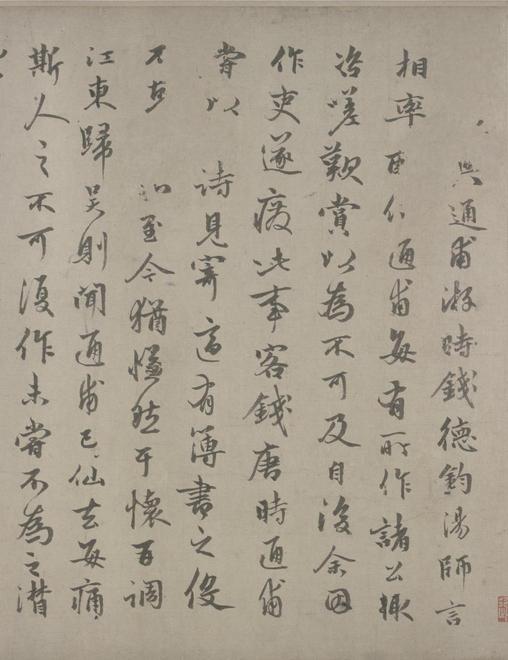 與通甫游時錢德鈞湯師言
相率通甫每有所作諸公輒
咨嗟歎賞以為不可及自後余因
作吏遂廢此事客錢唐時通甫
嘗以詩見寄適有簿書之役
不和至今猶慊然于懷調
江東歸吳則聞通甫已仙去每痛
斯人之不可復作未嘗不為之潸